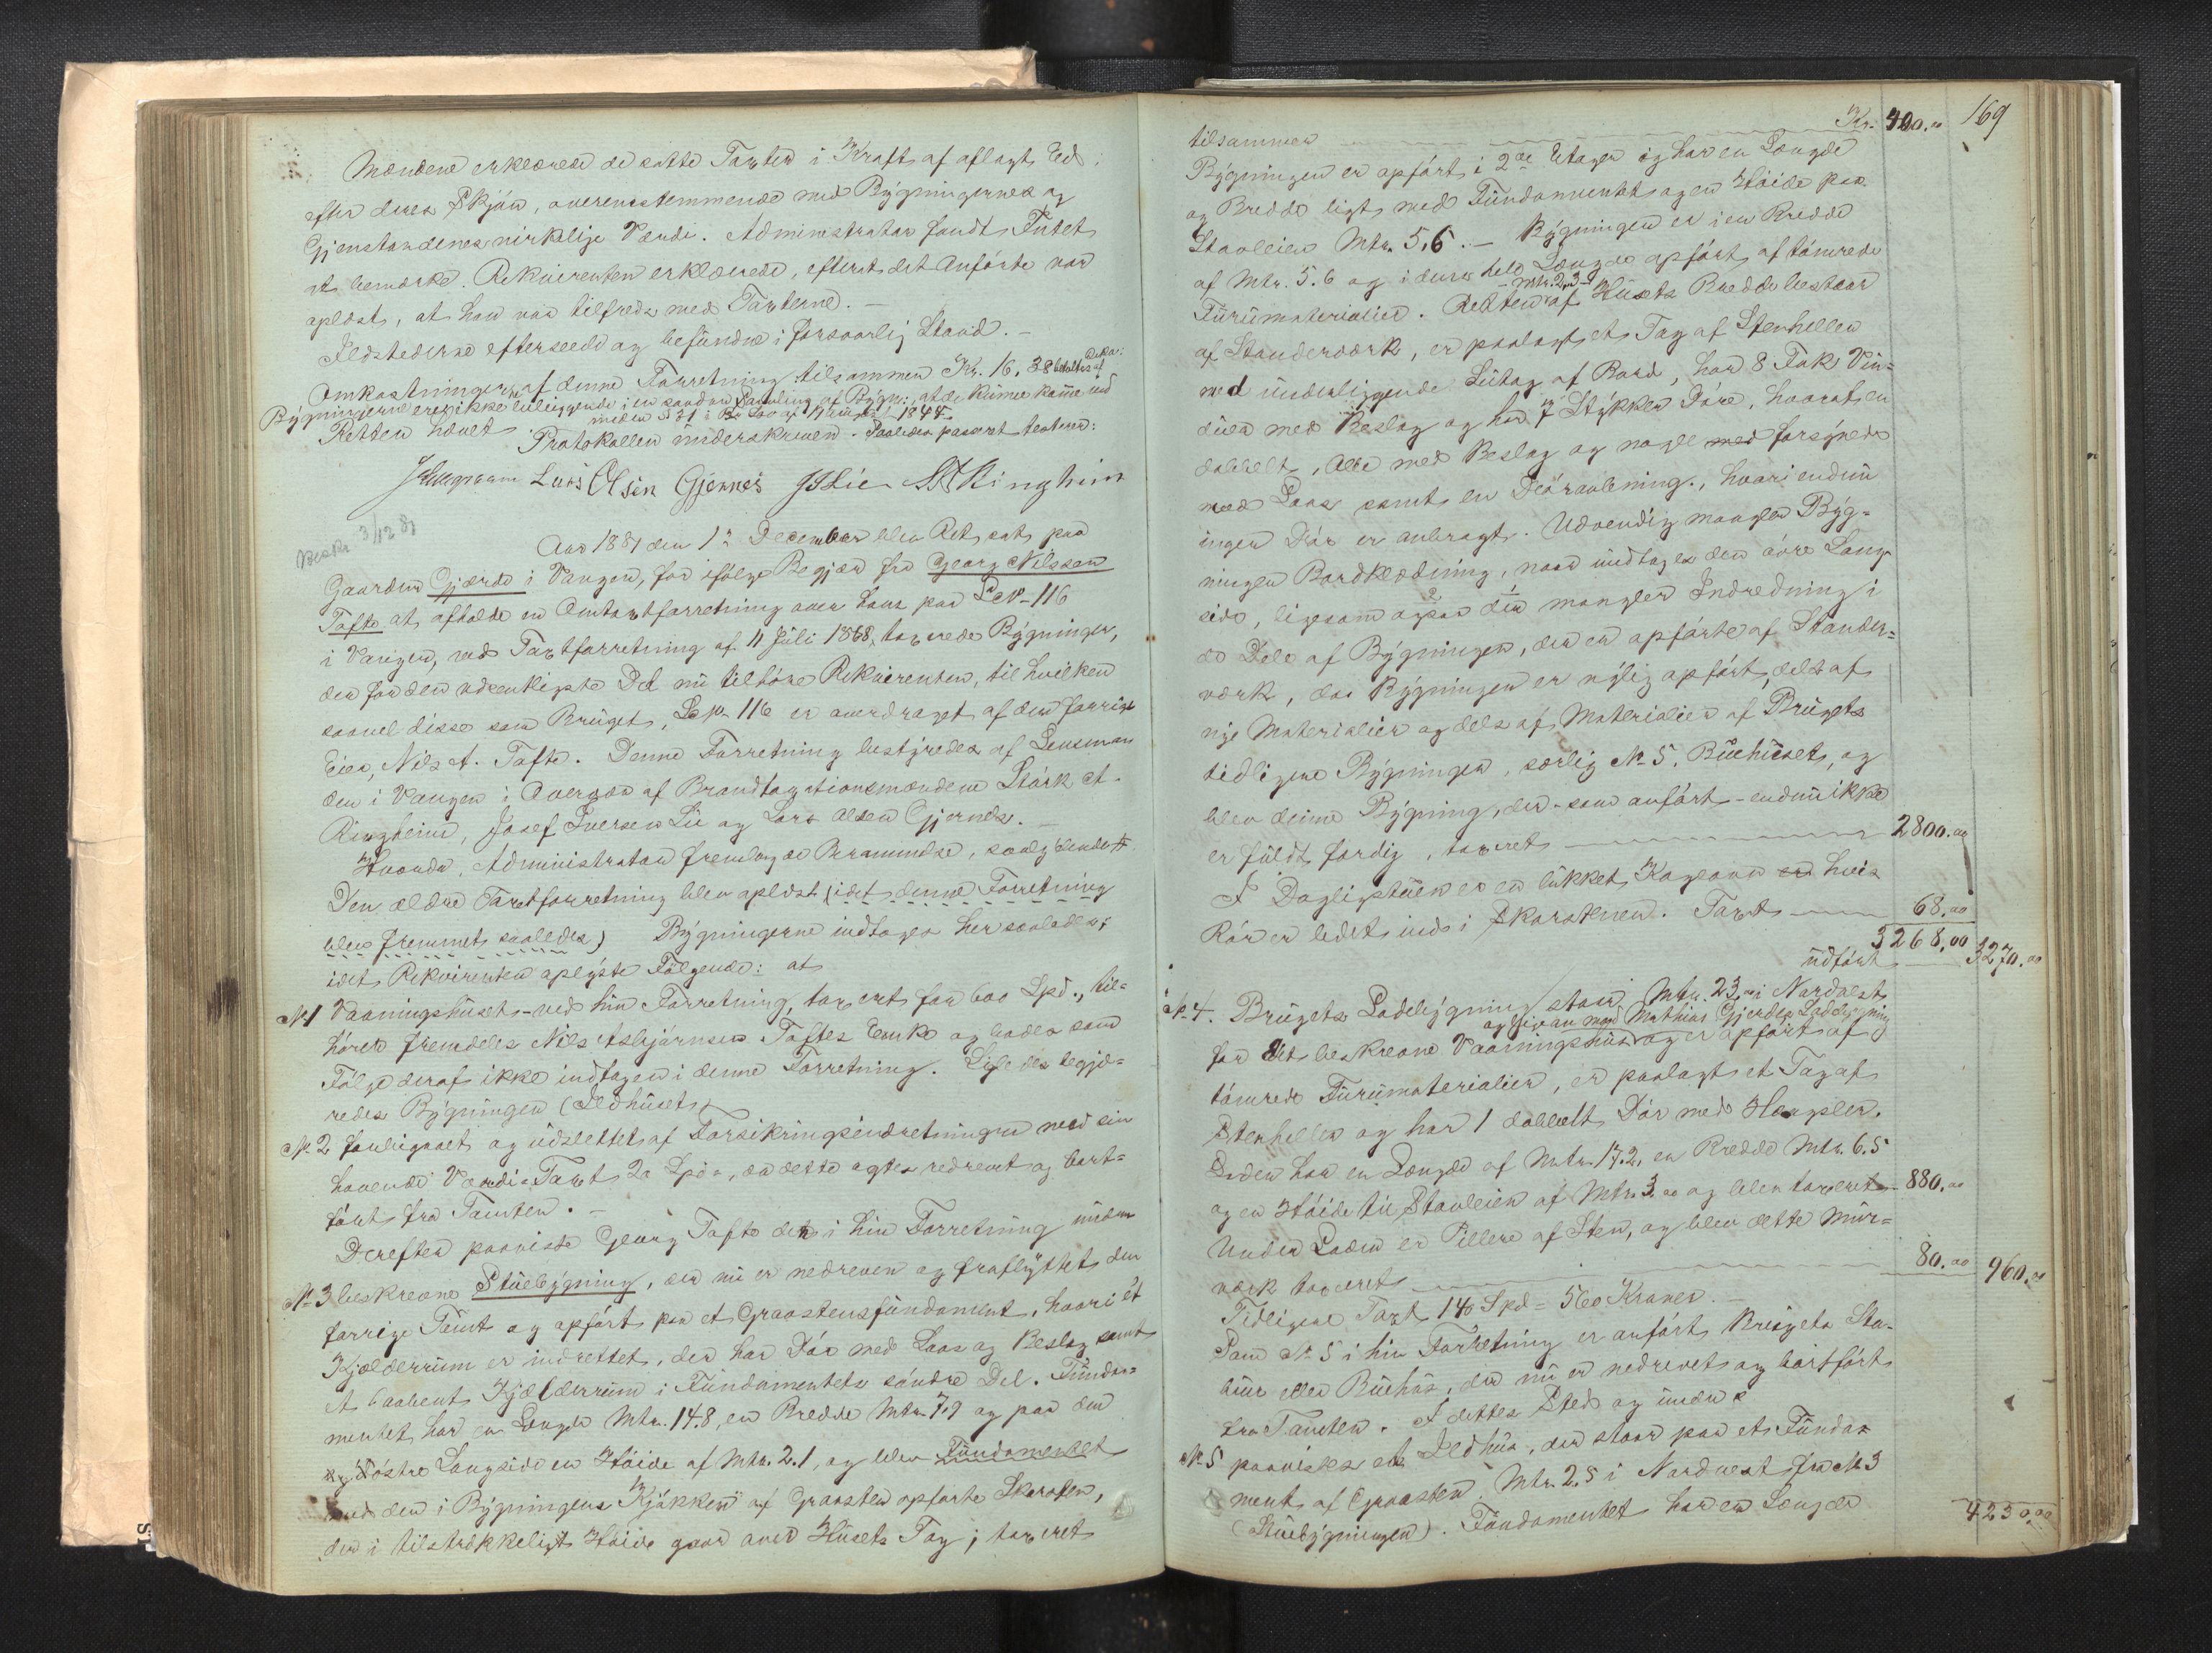 Mændene erklærede de satte Taxter i Kraft af aflagt Ed
efter deres Skjøn, overensstemmende med Bygningernes og
Gjenstandenes virkelige Værdi. Administrator fandt Intet
at bemærke. Rekvirenten erklærede, efterat det Anførte var
oplæst, at han var tilfreds med Taxterne. –
Ildstederne efterseede og befundne i forsvarlig Stand. –
Omkostningerne af denne Forretning tilsammen Kr. 16,38 betaltes af Rekv:
Bygningerne ere ikke beliggende i en saadan Samling af Bygn: at de kunne komme ind
under § 31 i Br Lov af August 1845.
Retten hævet
Protokollen underskreven. Saaledes passeret testerer:
Lars Olsen Gjernes J I Lie S A Ringheim
Beskr. 3/12 81
Aar 1881 den 1ste December blev Ret sat paa
Gaarden Gjærde i Vangen, for ifølge Begjær fra Georg Nilssen
Tofte at afholde en Omtaxtforretning over hans paa L No 116
i Vangen, ved Taxtforretning af 11 Juli 1868, taxerede Bygninger,
der for den væsentligste Del nu tilhøre Rekvirenten, til hvilken
saavel disse som Bruget, L No 116 er overdraget af den forrige
Eier, Nils A. Tofte. Denne Forretning bestyredes af Lensman-
den i Vangen i Overvær af Brandtaxationsmændene Størk A.
Ringheim, Josef Iversen Lie og Lars Olsen Gjernes. –
Hvorda, Administrator fremlagde Berammelse, saalydende #
Den ældre Taxtforretning blev oplæst (idet denne Forretning
blev fremmet saaledes) Bygningerne indtages her saaledes;
idet Rekvirenten oplyste Følgende: at
No 1 Vaaningshuset – ved hin Forretning, taxeret for 600 Spd., til-
hører fremdeles Nils Asbjørnsen Toftes Enke og bades som
Følge deraf ikke indtagen i denne Forretning. Ligeledes begjæ-
redes Bygningen (Ildhuset)
No 2 forbigaaet og udslettet af Forsikringsindretningen med sin
havende Værdi-Taxt 20 Spd., da dette agtes nedrevet og bort-
ført fra Tomten. –
Derefter paaviste Georg Tofte den i hin Forretning under
No 3 beskrevne Stuebygning, der nu er nedreven og fraflyttet den
forrige Tomt og opført paa et Graastensfundament, hvori ét
Kjælderrum er indrettet, der har Dør med Laas og Beslag samt
et aabent Kjælderrum i Fundamentets søndre Del. Funda-
mentet har en Længde Mtr. 14.8, en Bredde Mtr. 7.9 og paa den
østre Langside en Høide af Mtr. 2.1, og blev Fundamentet
med den i Bygningens Kjøkken af Graasten opførte Skorsten,
der i tilstrækkeligt Høide gaar over Husets Tag; taxeret
169
tilsammen Kr. 400.00
Bygningen er opført i 2de Etager og har en Længde
og Bredde ligt med Fundamentet og en Høide paa
Stavleien Mtr. 5,6. – Bygningen er i en Bredde
af Mtr. 5.6 og i dens hele Længde opført af tømrede
Furumaterialier. Resten – Mtr. 2,3 – af Husets Bredde bestaar
af Standerværk, er paalagt et Tag af Stenheller
med underliggende Sutag af Bord, har 8 Fak Vin-
duer med Beslag og har 7 Stykker Døre, hvorat en
dobbelt, Alle med Beslag og nogle med forsynede
med Laas samt en Døraabning, hvori endnu
ingen Dør er anbragt. Udvendig mangler Byg-
ningen Bordklædning, naar undtages den øvre Lang-
side, ligesom ogsaa der mangler Indredning i
de Dele af Bygningen, der er opførte af Stander-
værk, da Bygningen er nylig opført, dels af
nye Materialier og dels af Materialier af Brugets
tidligere Bygninger, særlig No 5, Buehuset, og
blev denne Bygning, der – som anført – endnu ikke
er fuldt færdig, taxeret 2800.00
I Dagligstuen er en lukket Kogeovn hvis
Rør er ledet ind i Skorstenen. Taxt 68.00
3268.00
udført 3270.00
No 4. Brugets Ladebygning staar Mtr. 23.00 i Nordvest
for det beskrevne Vaaningshus og Mathias Gjerdes Ladebygning og er opført af
tømrede Furumaterialier, er paalagt et Tag af
Stenheller og har 1 dobbelt Dør med Hængsler.
Laden har en Længde af Mtr. 17.2, en Bredde Mtr. 6.5
og en Høide til Stavleien af Mtr. 3.00 og blev taxeret 880.00
Under Laden er Pillere af Sten, og blev dette Mur-
værk taxeret 80.00 960.00
Tidligere Taxt 140 Spd = 560 Kroner. –
Som No 5 i hin Forretning er anført Brugets Sta-
buur eller Buehus, der nu er nedrevet og bortført
fra Tomten. I dettes Sted og under
No 5 paavistes et Ildhus, der staar paa et Funda-
ment af Graasten. Mtr. 2.5 i Nordvest fra No 3
(Stuebygningen). Fundamentet har en Længde
4230.00